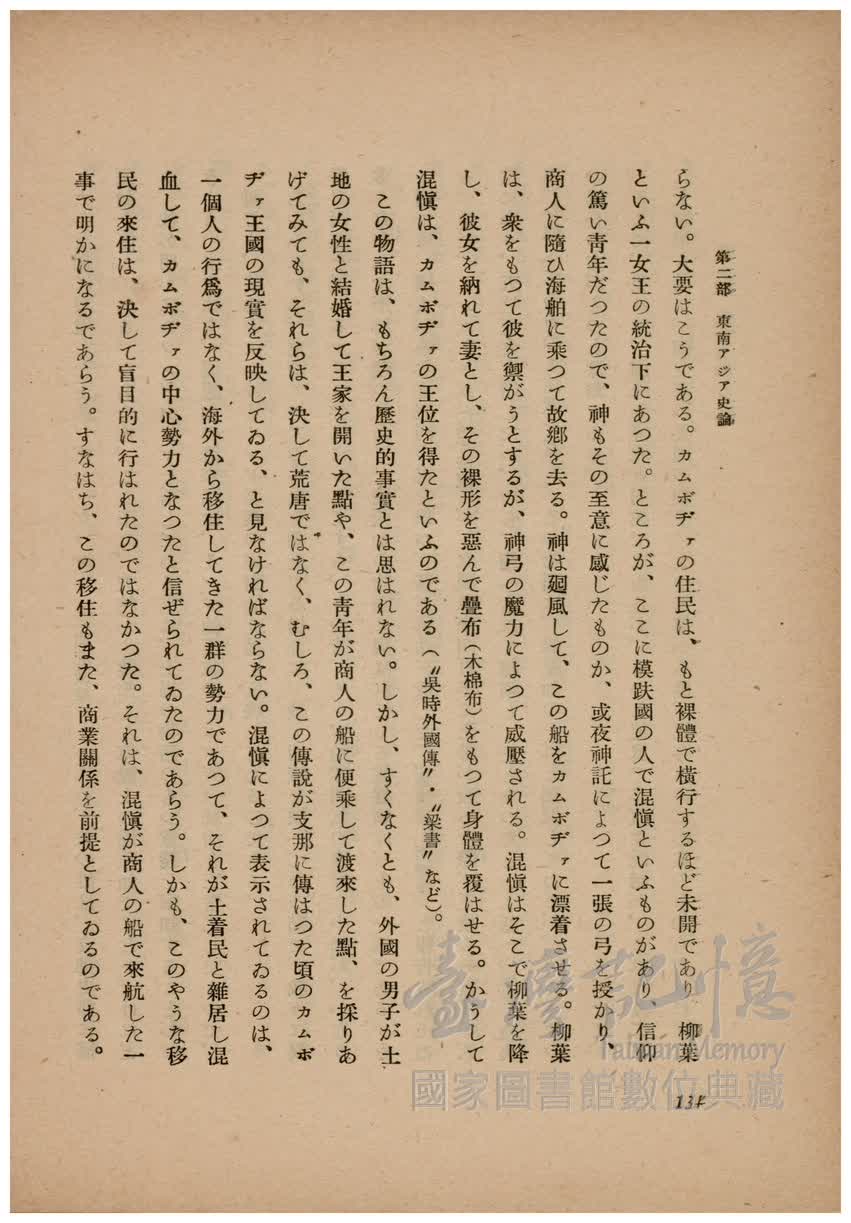 第二部　東南アジア史論
らない。大要はこうである。カムボヂァの住民は、もと裸體で橫行するほど未開であり　柳葉
といふ一女王の統治下にあつた。ところが、ここに模趺國の人で混愼といふものがあり、信仰
の篤い靑年だつたので、神もその至意に感じたものか、或夜神託によつて一張の弓を授かり、
商人に隨ひ海舶に乘つて故鄕を去る。神は廻風して、この船をカムボヂァに漂着させる。柳葉
は、衆をもつて彼を禦がうとするが、神弓の魔力によつて威壓される。混愼はそこで柳葉を降
し、彼女を納れて妻とし、その裸形を惡んで疊布（木棉布）をもつて身體を覆はせる。かうして
混愼は、カムボヂァの王位を得たといふのである（〝吳時外國傳〟・〝梁書〟など）。
この物語は、もちろん歷史的事實とは思はれない。しかし、すくなくとも、外國の男子が土
地の女性と結婚して王家を開いた點や、この靑年が商人の船に便乘して渡來した點、を採りあ
げてみても、それらは、決して荒唐ではなく、むしろ、この傳說が支那に傳はつた頃のカムボ
ヂァ王國の現實を反映してゐる、と見なければならない。混愼によつて表示されてゐるのは、
一個人の行爲ではなく、海外から移住してきた一群の勢力であつて、それが土着民と雜居し混
血して、カムボヂァの中心勢力となつたと信ぜられてゐたのであらう。しかも、このやうな移
民の來住は、決して盲目的に行はれたのではなかつた。それは、混愼が商人の船で來航した一
事で明かになるであらう。すなはち、この移住もまた、商業關係を前提としてゐるのである。
134
臺灣記憶
Taiwan Memory
國家圖書館數位典藏